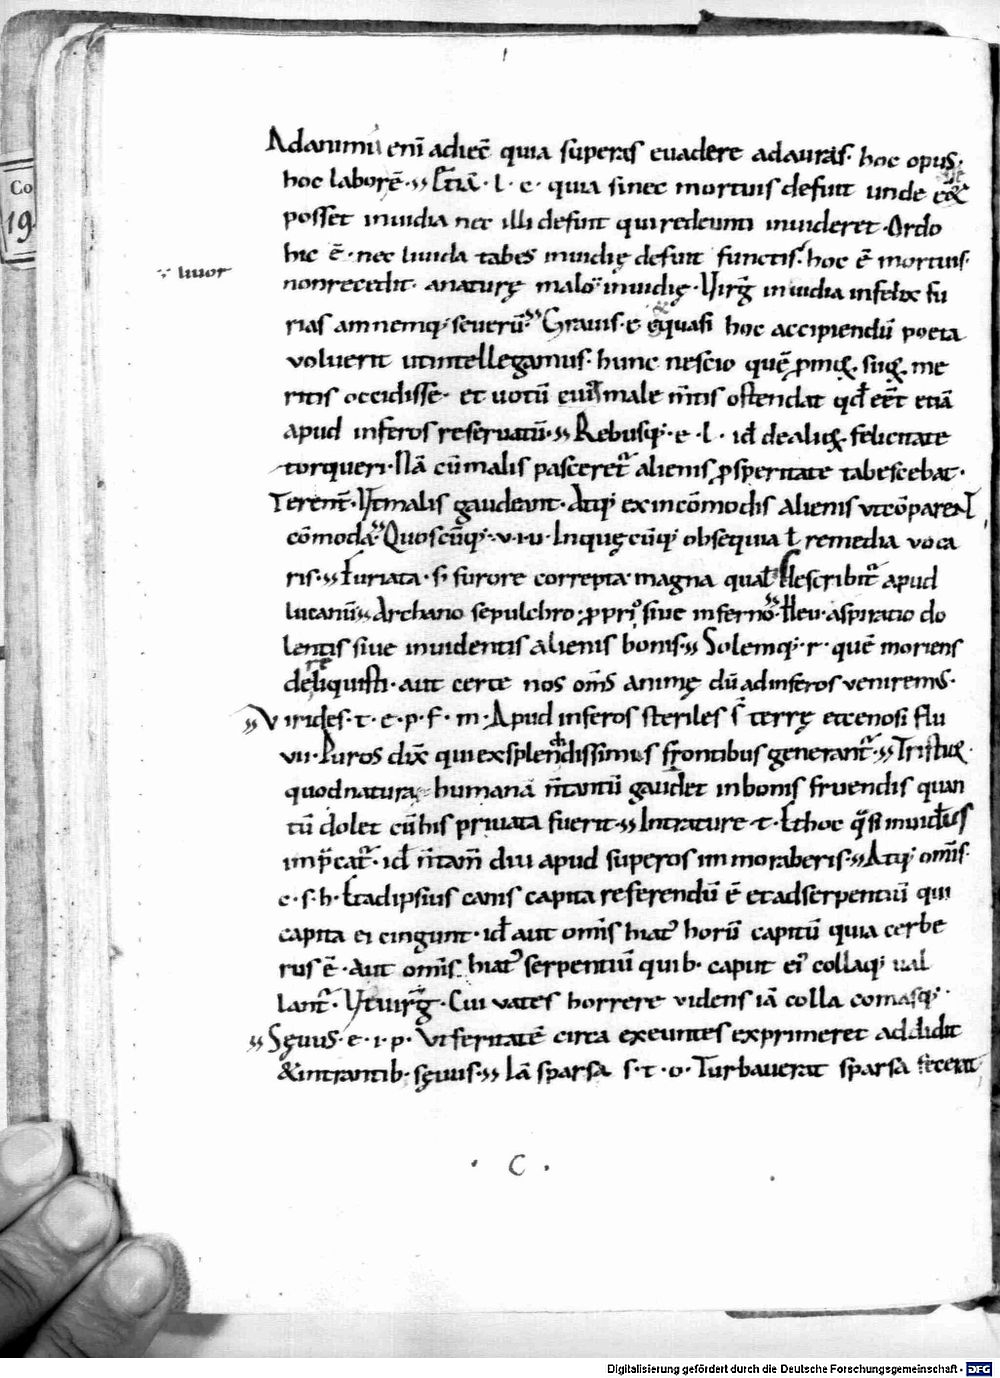 Adanimū enī adiec̄ quia superas euadere adauras· hoc opus·
hoc laborē·,, Etiā· l· e· quia sinec mortuis defuit unde eē
posset inuidia nec illi defuit qui redeunti inuideret· Ordo
hic ē· nec liuida tabes inuidię defuit functis· hoc ē mortuis·
·,· liuor
nonrecedit· anaturę malo· inuidię· Uirḡ inuidia infelix fu
rias amnemq; seuerū·,, Grauis· e· quasi hoc accipiendū poeta
voluerit utintellegamus· hunc nescio quē
ritis occidisse· et uotū male ostendat etiā
apud inferos reseruatū·,, Rebusq;· e· l· id de felicitate
torqueri· Nā cū malis pasceret alienis prosperitate tabescebat·
Terent̄· Ut malis gaudeant· Atq; ex incōmodis alienis vt cōparent
cōmoda·,, Quoscūq;· v· i· u· Inquęcūq; obsequia ł remedia voca
ris·,, Furiata· s· furore correpta· magna describit apud
lucanū·,, Archano sepulchro· siue inferno·,, Heu· aspiratio do
lentis siue inuidentis alienis bonis·,, Solemq;· r· quē moriens
deliquisti· aut certe nos om̄s animę dū ad inferos veniremus·
,, Virides· t· e· p· f· m· Apud inferos steriles s̄ terrę etcenosi flu
vii· Puros dix̄ qui exsplendidissimis frontibus generant·,,
quod natura humana gaudet inbonis fruendis quan
tū dolet cū his priuata fuerit·,, Intrature· t· Et hoc q̄si inuidus
id diu apud superos immoraberis·,, Atq; om̄is·
e· s· h· Et adipsius canis capita referendū ē et adserpentiū qui
capita ei cingunt· id aut om̄is hiat' horū capitū quia cerbe
rus ē· Aut om̄is hiat' serpentiū quib· caput ei' collaq; ual
lant· Ut uirḡ· Cui vates horrere videns iā colla comasq;·
,, Sęuus· e· i· p· Vt feritatē circa exeuntes exprimeret addidit
&intrantib· sęuis·,, Iā sparsa s· t· o· Turbauerat sparsa fecerat
· C ·
Co
19
Digitalisierung gefördert durch die Deutsche Forschungsgemeinschaft · DFG